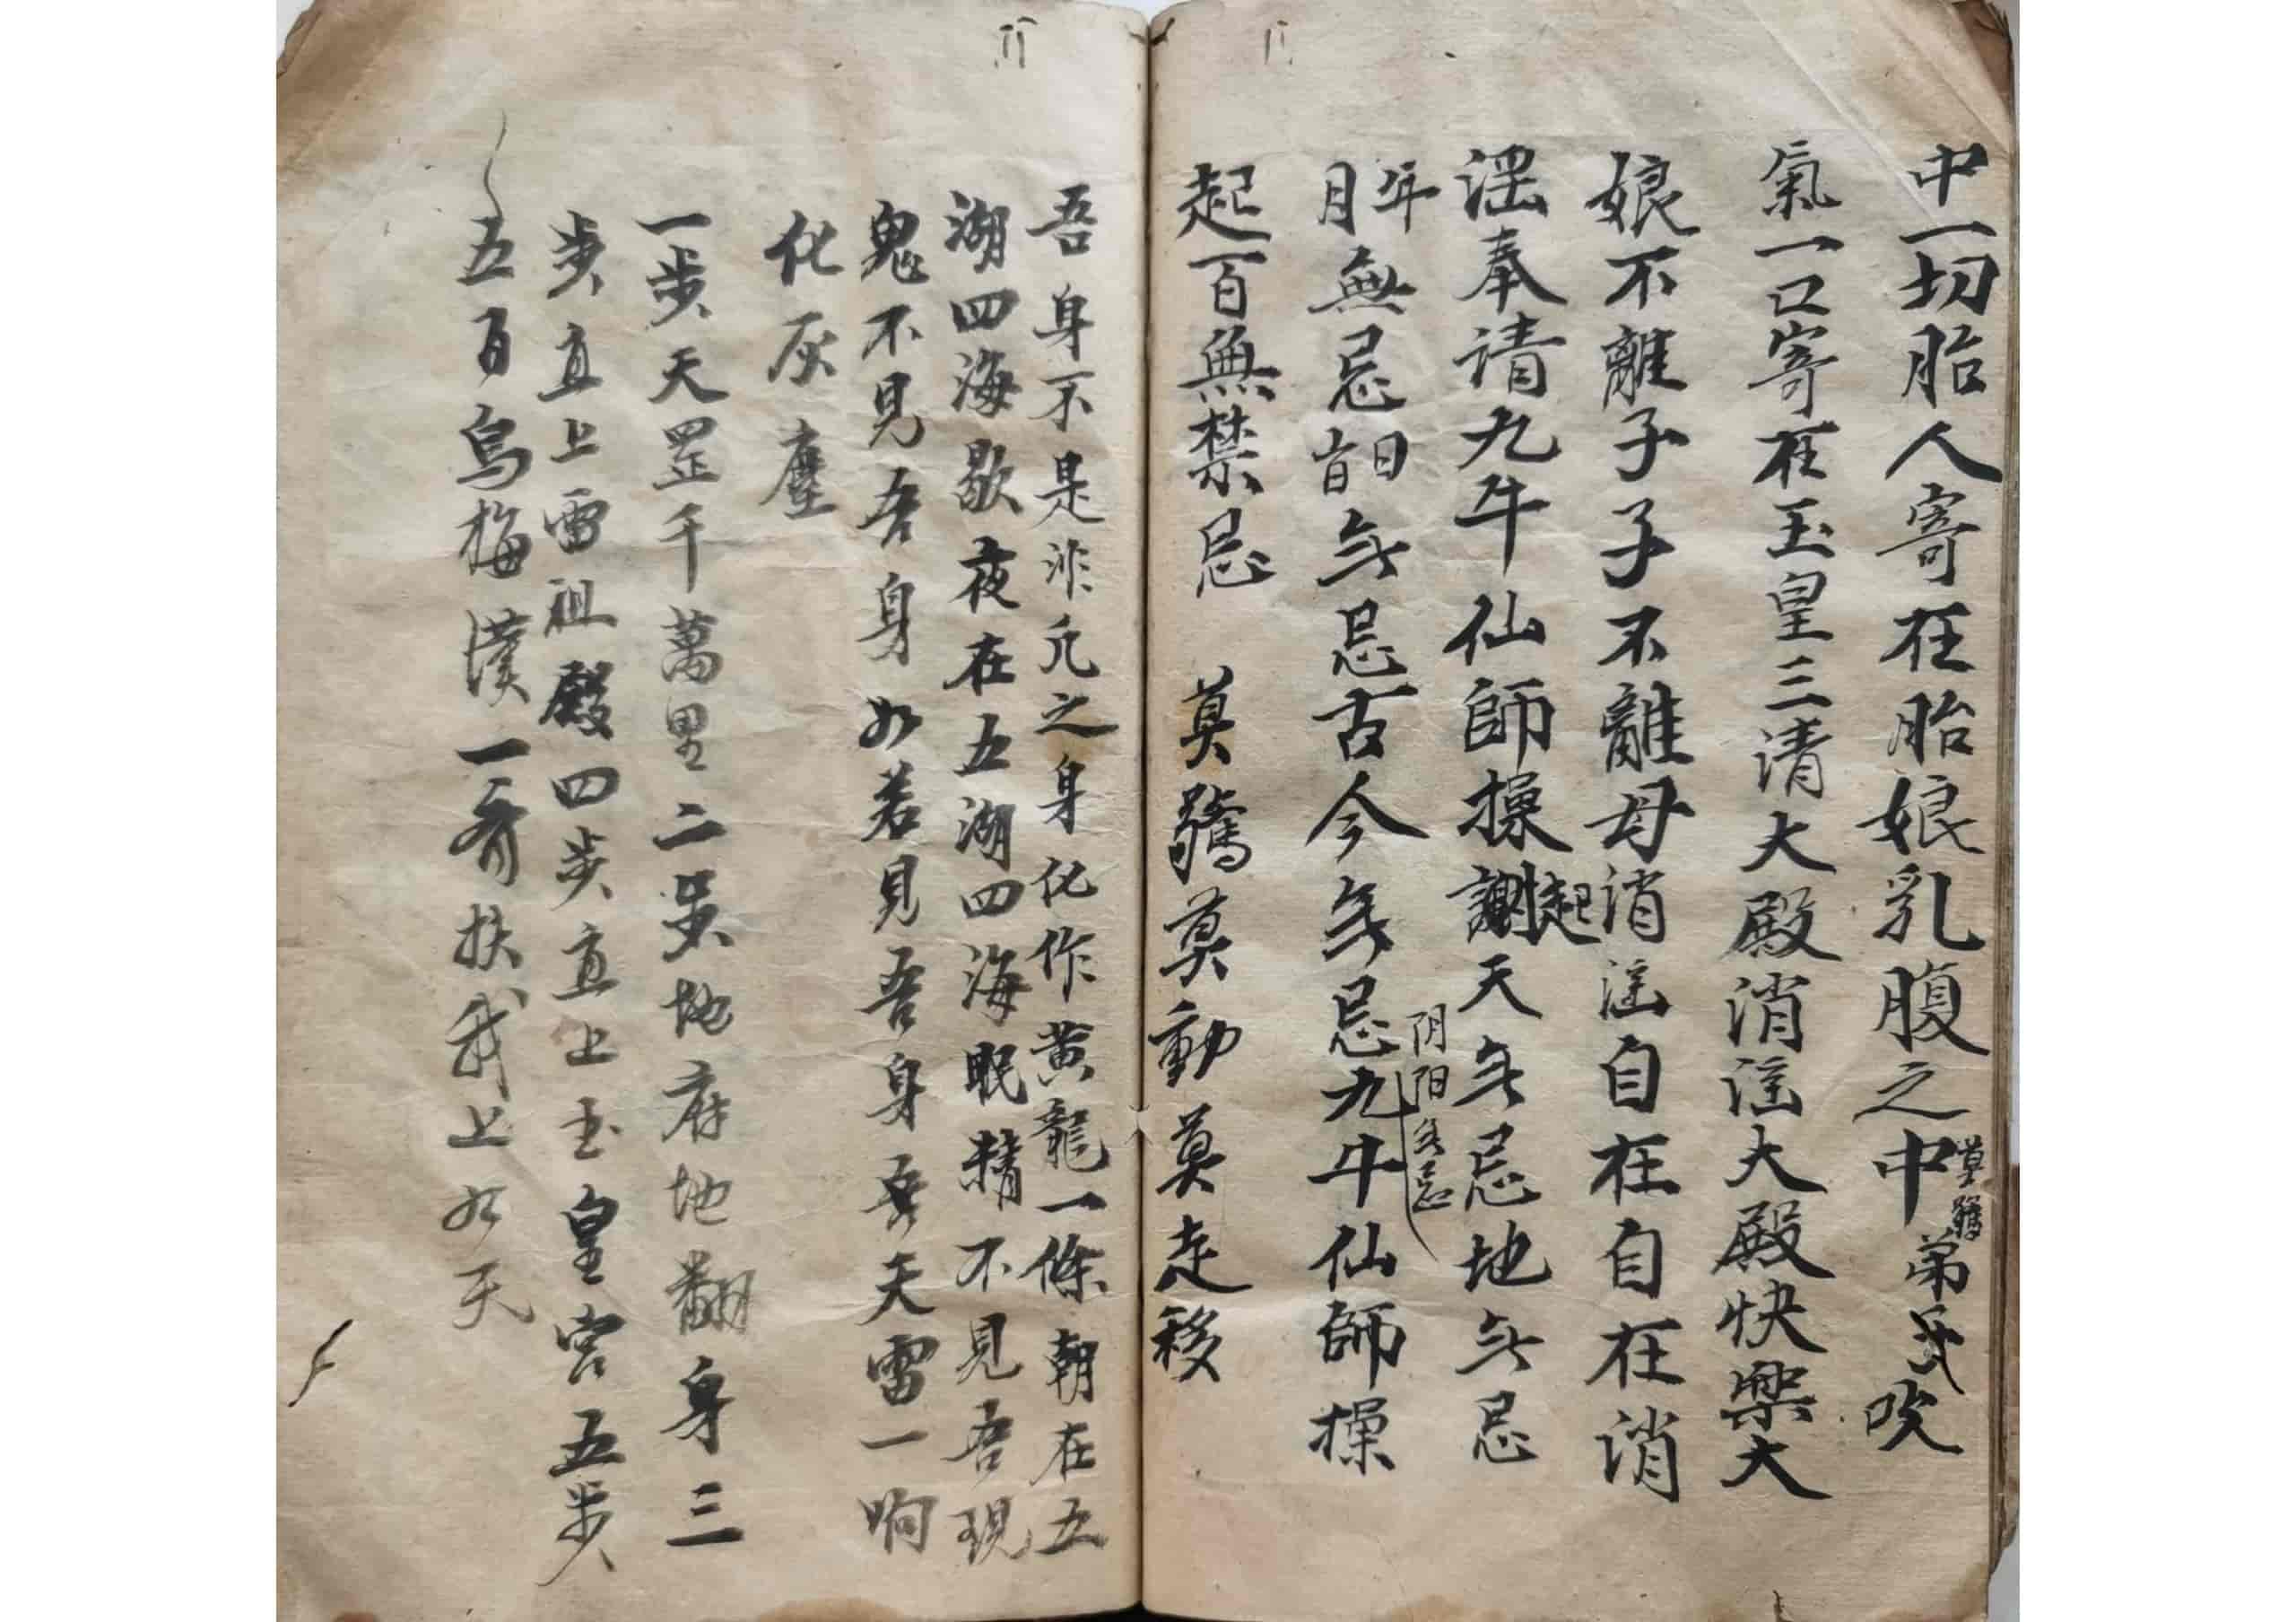 中一切胎人寄在胎娘乳腹之中弟子吹
莫驚
氣一口寄在玉皇三清大殿消遥大殿快樂大
娘不離子子不離母消遥自在自在消
遥奉请九牛仙師操起天无忌地无忌
阴阳无忌
年月無忌日时无忌古今无忌九牛仙師操
起百無禁忌 莫驚莫動莫走移
吾身不是非凡之身化作黄龍一條朝在五
湖四海歇夜在五湖四海眠精不見吾現
鬼不見吾身如若見吾身吾天雷一响
化灰塵
一步天罡千萬里二步地府地翻身三
步直上雷祖殿四步直上玉皇宫五步
五百烏梅漢一齊扶我上九天